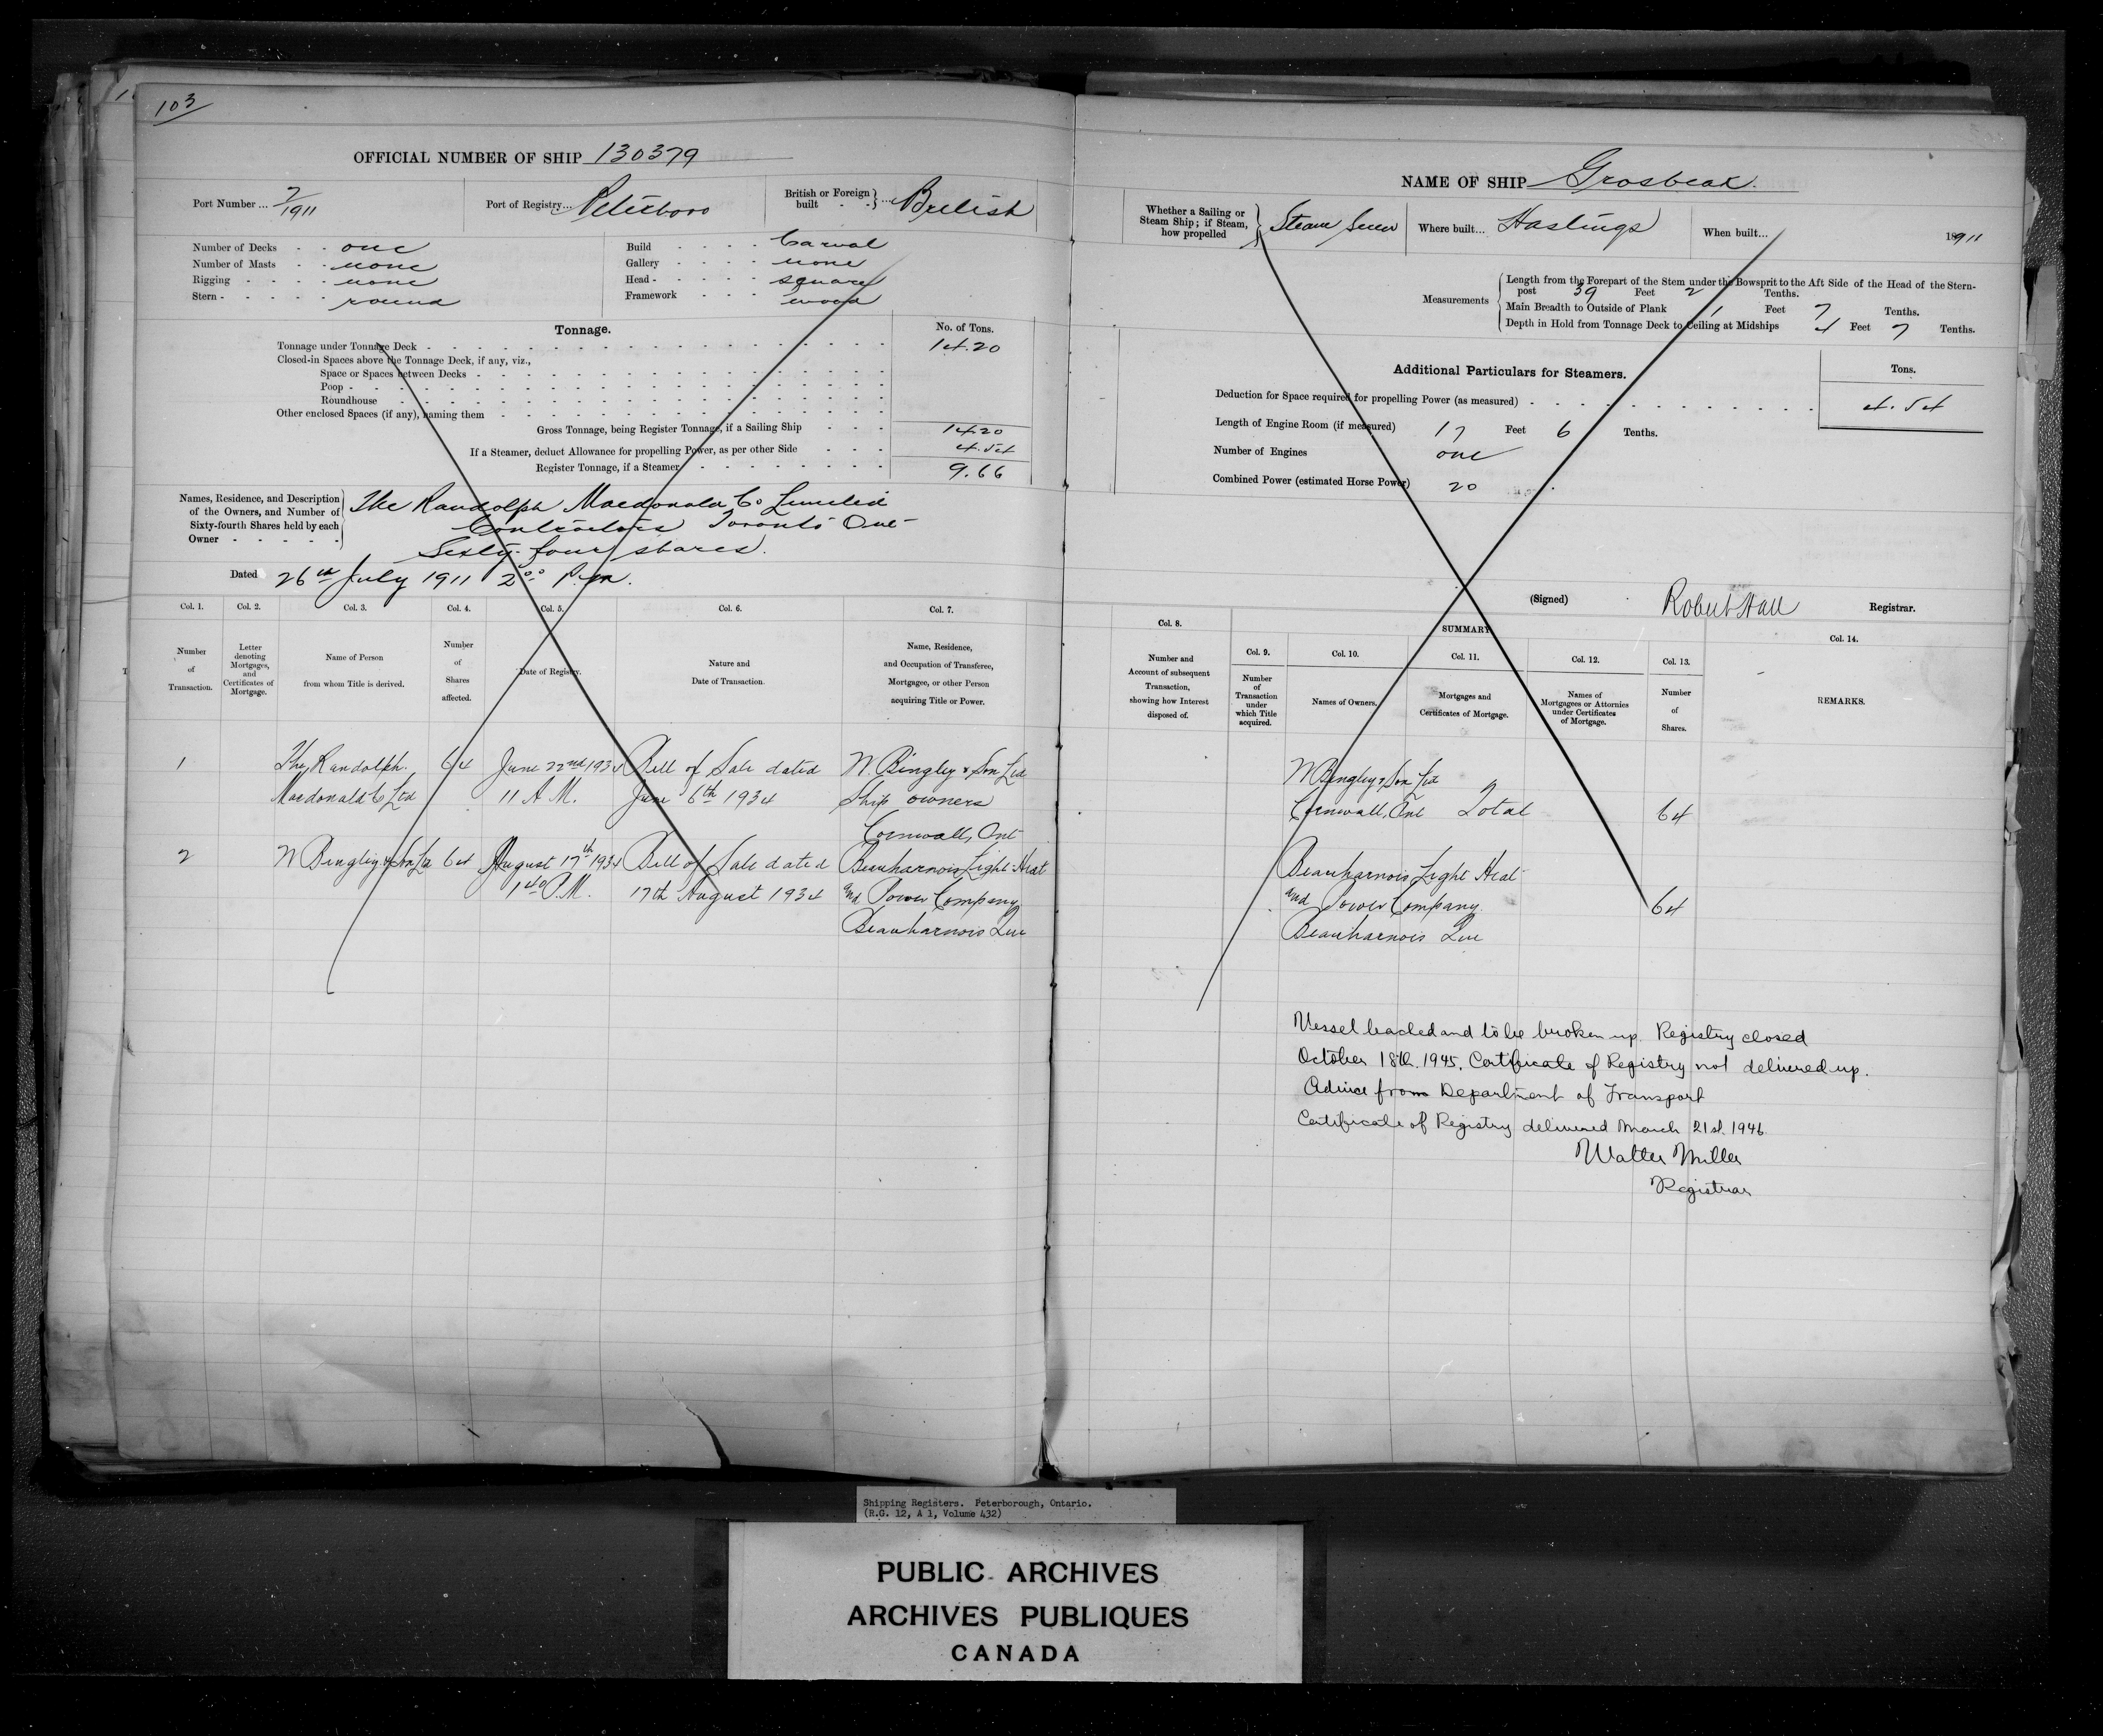 103
OFFICIAL NUMBER OF SHIP 130379
Port Number ... 7/1911
Port of Registry... Peterboro
British or Foreign built - - } ... British
Number of Decks - - one
Number of Masts - - none
Rigging - - - - none
Stern - - - - - round
Build - - - - Carval
Gallery - - - - none
Head - - - - - square
Framework - - - wood
Tonnage.
No. of Tons.
Tonnage under Tonnage Deck - 14.20
Closed-in Spaces above the Tonnage Deck, if any, viz.,
Space or Spaces between Decks -
Poop -
Roundhouse -
Other enclosed Spaces (if any), naming them -
Gross Tonnage, being Register Tonnage, if a Sailing Ship - - - 14.20
If a Steamer, deduct Allowance for propelling Power, as per other Side - - - 4.54
Register Tonnage, if a Steamer - 9.66
Names, Residence, and Description of the Owners, and Number of Sixty-fourth Shares held by each Owner - - - - -
The Randolph Macdonald Co Limited
Contractors Toronto Ont
Sixty-four shares.
Dated 26th July 1911 2.00 P.m.
Col. 1. Col. 2. Col. 3. Col. 4. Col. 5. Col. 6. Col. 7.
Number of Transaction.
Letter denoting Mortgages, and Certificates of Mortgage.
Name of Person from whom Title is derived.
Number of Shares affected.
Date of Registry.
Nature and Date of Transaction.
Name, Residence, and Occupation of Transferee, Mortgagee, or other Person acquiring Title or Power.
1 The Randolph 64 June 22nd 1934 Bill of Sale dated N. Bingley & Son Ltd
Macdonald Co Ltd 11 A.M. June 6th 1934 Ship owners
Cornwall, Ont
2 N Bingley & Son Ltd 64 August 17th 1934 Bill of Sale dated Beauharnois Light Heat
1.40 P.M. 17th August 1934 and Power Company
Beauharnois Que
NAME OF SHIP Grosbeak.
Whether a Sailing or Steam Ship; if Steam, how propelled } Steam Screw
Where built... Hastings
When built... 1911
Measurements
Length from the Forepart of the Stem under the Bowsprit to the Aft Side of the Head of the Stern-
post 39 Feet 2 Tenths.
Main Breadth to Outside of Plank Feet 7 Tenths.
Depth in Hold from Tonnage Deck to Ceiling at Midships 4 Feet 7 Tenths.
Additional Particulars for Steamers.
Tons.
Deduction for Space required for propelling Power (as measured) - 4.54
Length of Engine Room (if measured) 17 Feet 6 Tenths.
Number of Engines one
Combined Power (estimated Horse Power) 20
(Signed) Robert Hall Registrar.
Col. 8.
SUMMARY
Col. 9. Col. 10. Col. 11. Col. 12. Col. 13. Col. 14.
Number and Account of subsequent Transaction, showing how Interest disposed of.
Number of Transaction under which Title acquired.
Names of Owners.
Mortgages and Certificates of Mortgage.
Names of Mortgagees or Attornies under Certificates of Mortgage.
Number of Shares.
REMARKS.
N Bingley & Son Ltd
Cornwall, Ont Total 64
Beauharnois Light Heat
and Power Company 64
Beauharnois Que
Vessel beached and to be broken up. Registry closed
October 18th. 1945. Certificate of Registry not delivered up.
Advice from Department of Transport
Certificate of Registry delivered March 21st. 1946.
Walter Miller
Registrar
Shipping Registers. Peterborough, Ontario.
(R.G. 12, A 1, Volume 432)
PUBLIC ARCHIVES
ARCHIVES PUBLIQUES
CANADA